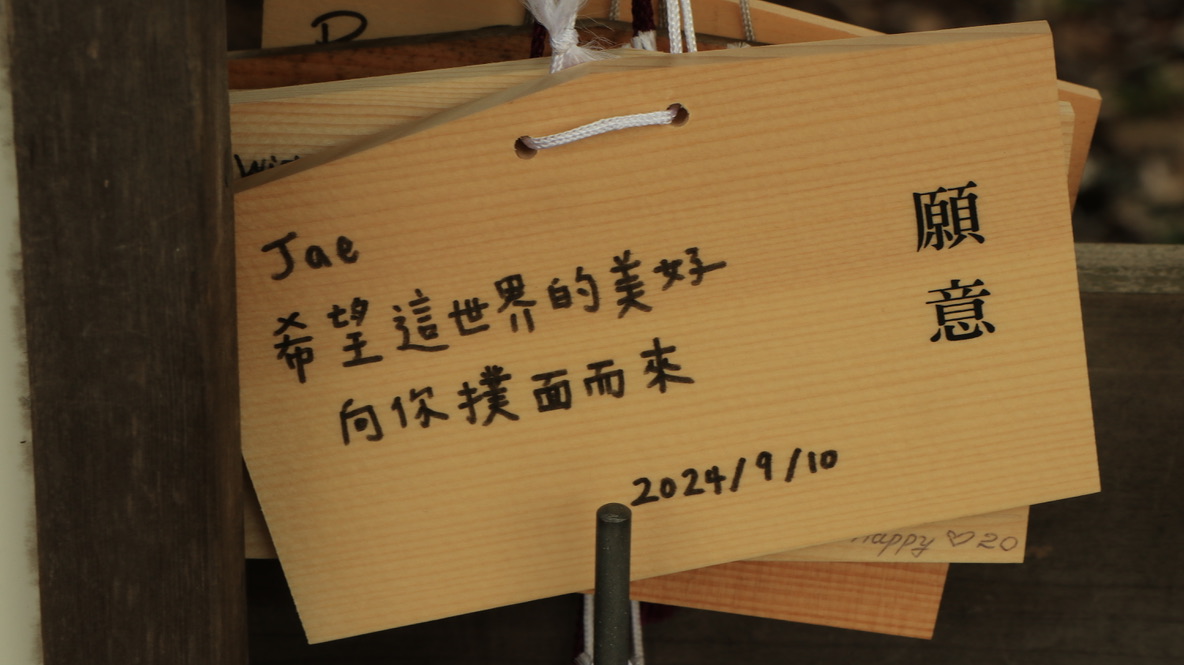 Jae
希望這世界的美好
向你撲面而來
2024/9/10
願意
Happy ♡ 20